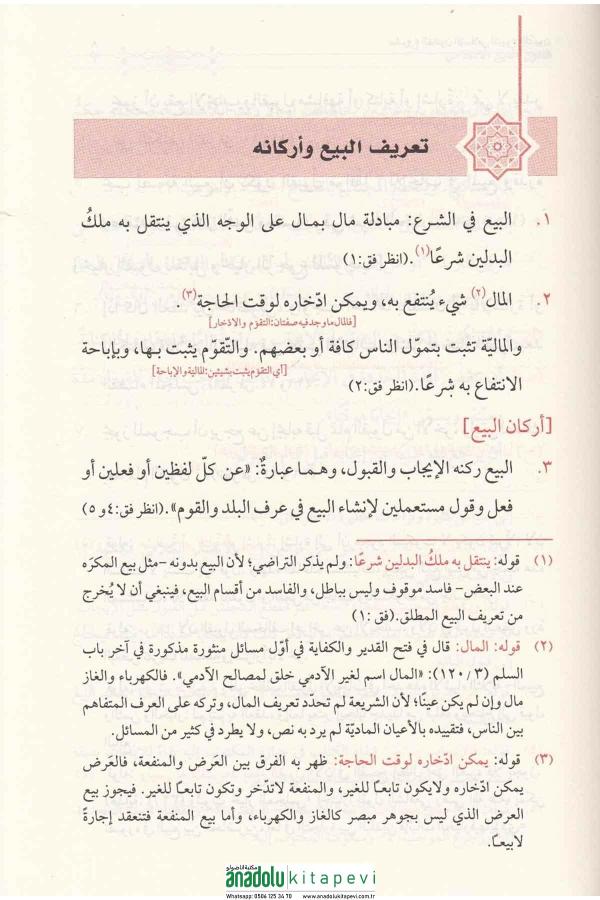 تعريف البيع وأركانه
١. البيع في الشرع: مبادلة مال بمال على الوجه الذي ينتقل به ملكُ
البدلين شرعًا(١).(انظر فق:١)
٢. المال(٢) شيء يُنتفع به، ويمكن ادّخاره لوقت الحاجة(٣).
[فالمال ما وجد فيه صفتان: التقوّم والادّخار]
والماليّة تثبت بتموّل الناس كافة أو بعضهم. والتقوّم يثبت بـها، وبإباحة
[أي التقوّم يثبت بشيئين: المالية والإباحة]
الانتفاع به شرعًا.(انظر فق:٢)
[أركان البيع]
٣. البيع ركنه الإيجاب والقبول، وهـما عبارةٌ: «عن كلّ لفظين أو فعلين أو
فعل وقول مستعملين لإنشاء البيع في عرف البلد والقوم».(انظر فق:٤ و ٥)
(١) قوله: ينتقل به ملكُ البدلين شرعًا: ولم يذكر التراضي؛ لأن البيع بدونه -مثل بيع المكرَه
عند البعض- فاسد موقوف وليس بباطل، والفاسد من أقسام البيع، فينبغي أن لا يُخرج
من تعريف البيع المطلق.(فق :١)
(٢) قوله: المال: قال في فتح القدير والكفاية في أوّل مسائل منثورة مذكورة في آخر باب
السلم (٣/ ١٢٠): «المال اسم لغير الآدمي خلق لمصالح الآدمي». فالكهرباء والغاز
مال وإن لم يكن عينًا؛ لأن الشريعة لم تحدّد تعريف المال، وتركه على العرف المتفاهم
بين الناس، فتقييده بالأعيان الماديّة لم يرد به نص، ولا يطرد في كثير من المسائل.
(٣) قوله: يمكن ادّخاره لوقت الحاجة: ظهر به الفرق بين العَرض والمنفعة، فالعَرض
يمكن ادّخاره ولايكون تابعـًا للغير، والمنفعة لاتدّخر وتكون تابعـًا للغير. فيجوز بيع
العرض الذي ليس بجوهر مبصر كالغاز والكهرباء، وأما بيع المنفعة فتنعقد إجارةً
لابيعـًا.
مكتبة اناضولو
anadolu kitapevi
Whatsapp: 0506 125 34 70 www.anadolukitapevi.com.tr